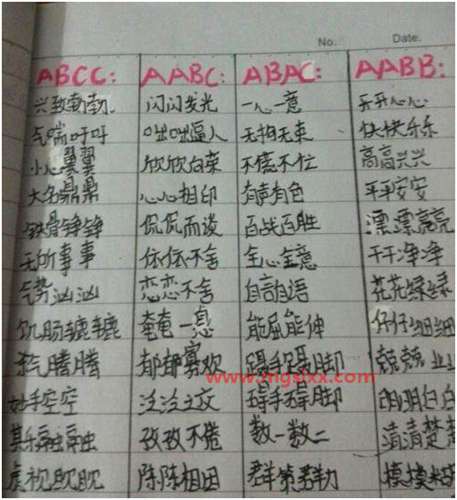 No. Date.
ABCC: AABC: ABAC: AABB:
兴致勃勃 闪闪发光 一心一意 开开心心
气喘吁吁 咄咄逼人 无拘无束 快快乐乐
小心翼翼 欣欣向荣 不慌不忙 高高兴兴
大名鼎鼎 心心相印 有声有色 平平安安
铁骨铮铮 侃侃而谈 百战百胜 漂漂亮亮
无所事事 依依不舍 全心全意 干干净净
气势汹汹 恋恋不舍 自言自语 花花绿绿
饥肠辘辘 奄奄一息 能屈能伸 仔仔细细
杀气腾腾 郁郁寡欢 蹑手蹑脚 兢兢业业
www.mgslxx.com
妙手空空 泛泛之交 碍手碍脚 明明白白
其乐融融 孜孜不倦 数一数二 清清楚楚
虎视眈眈 陈陈相因 群策群力 模模糊